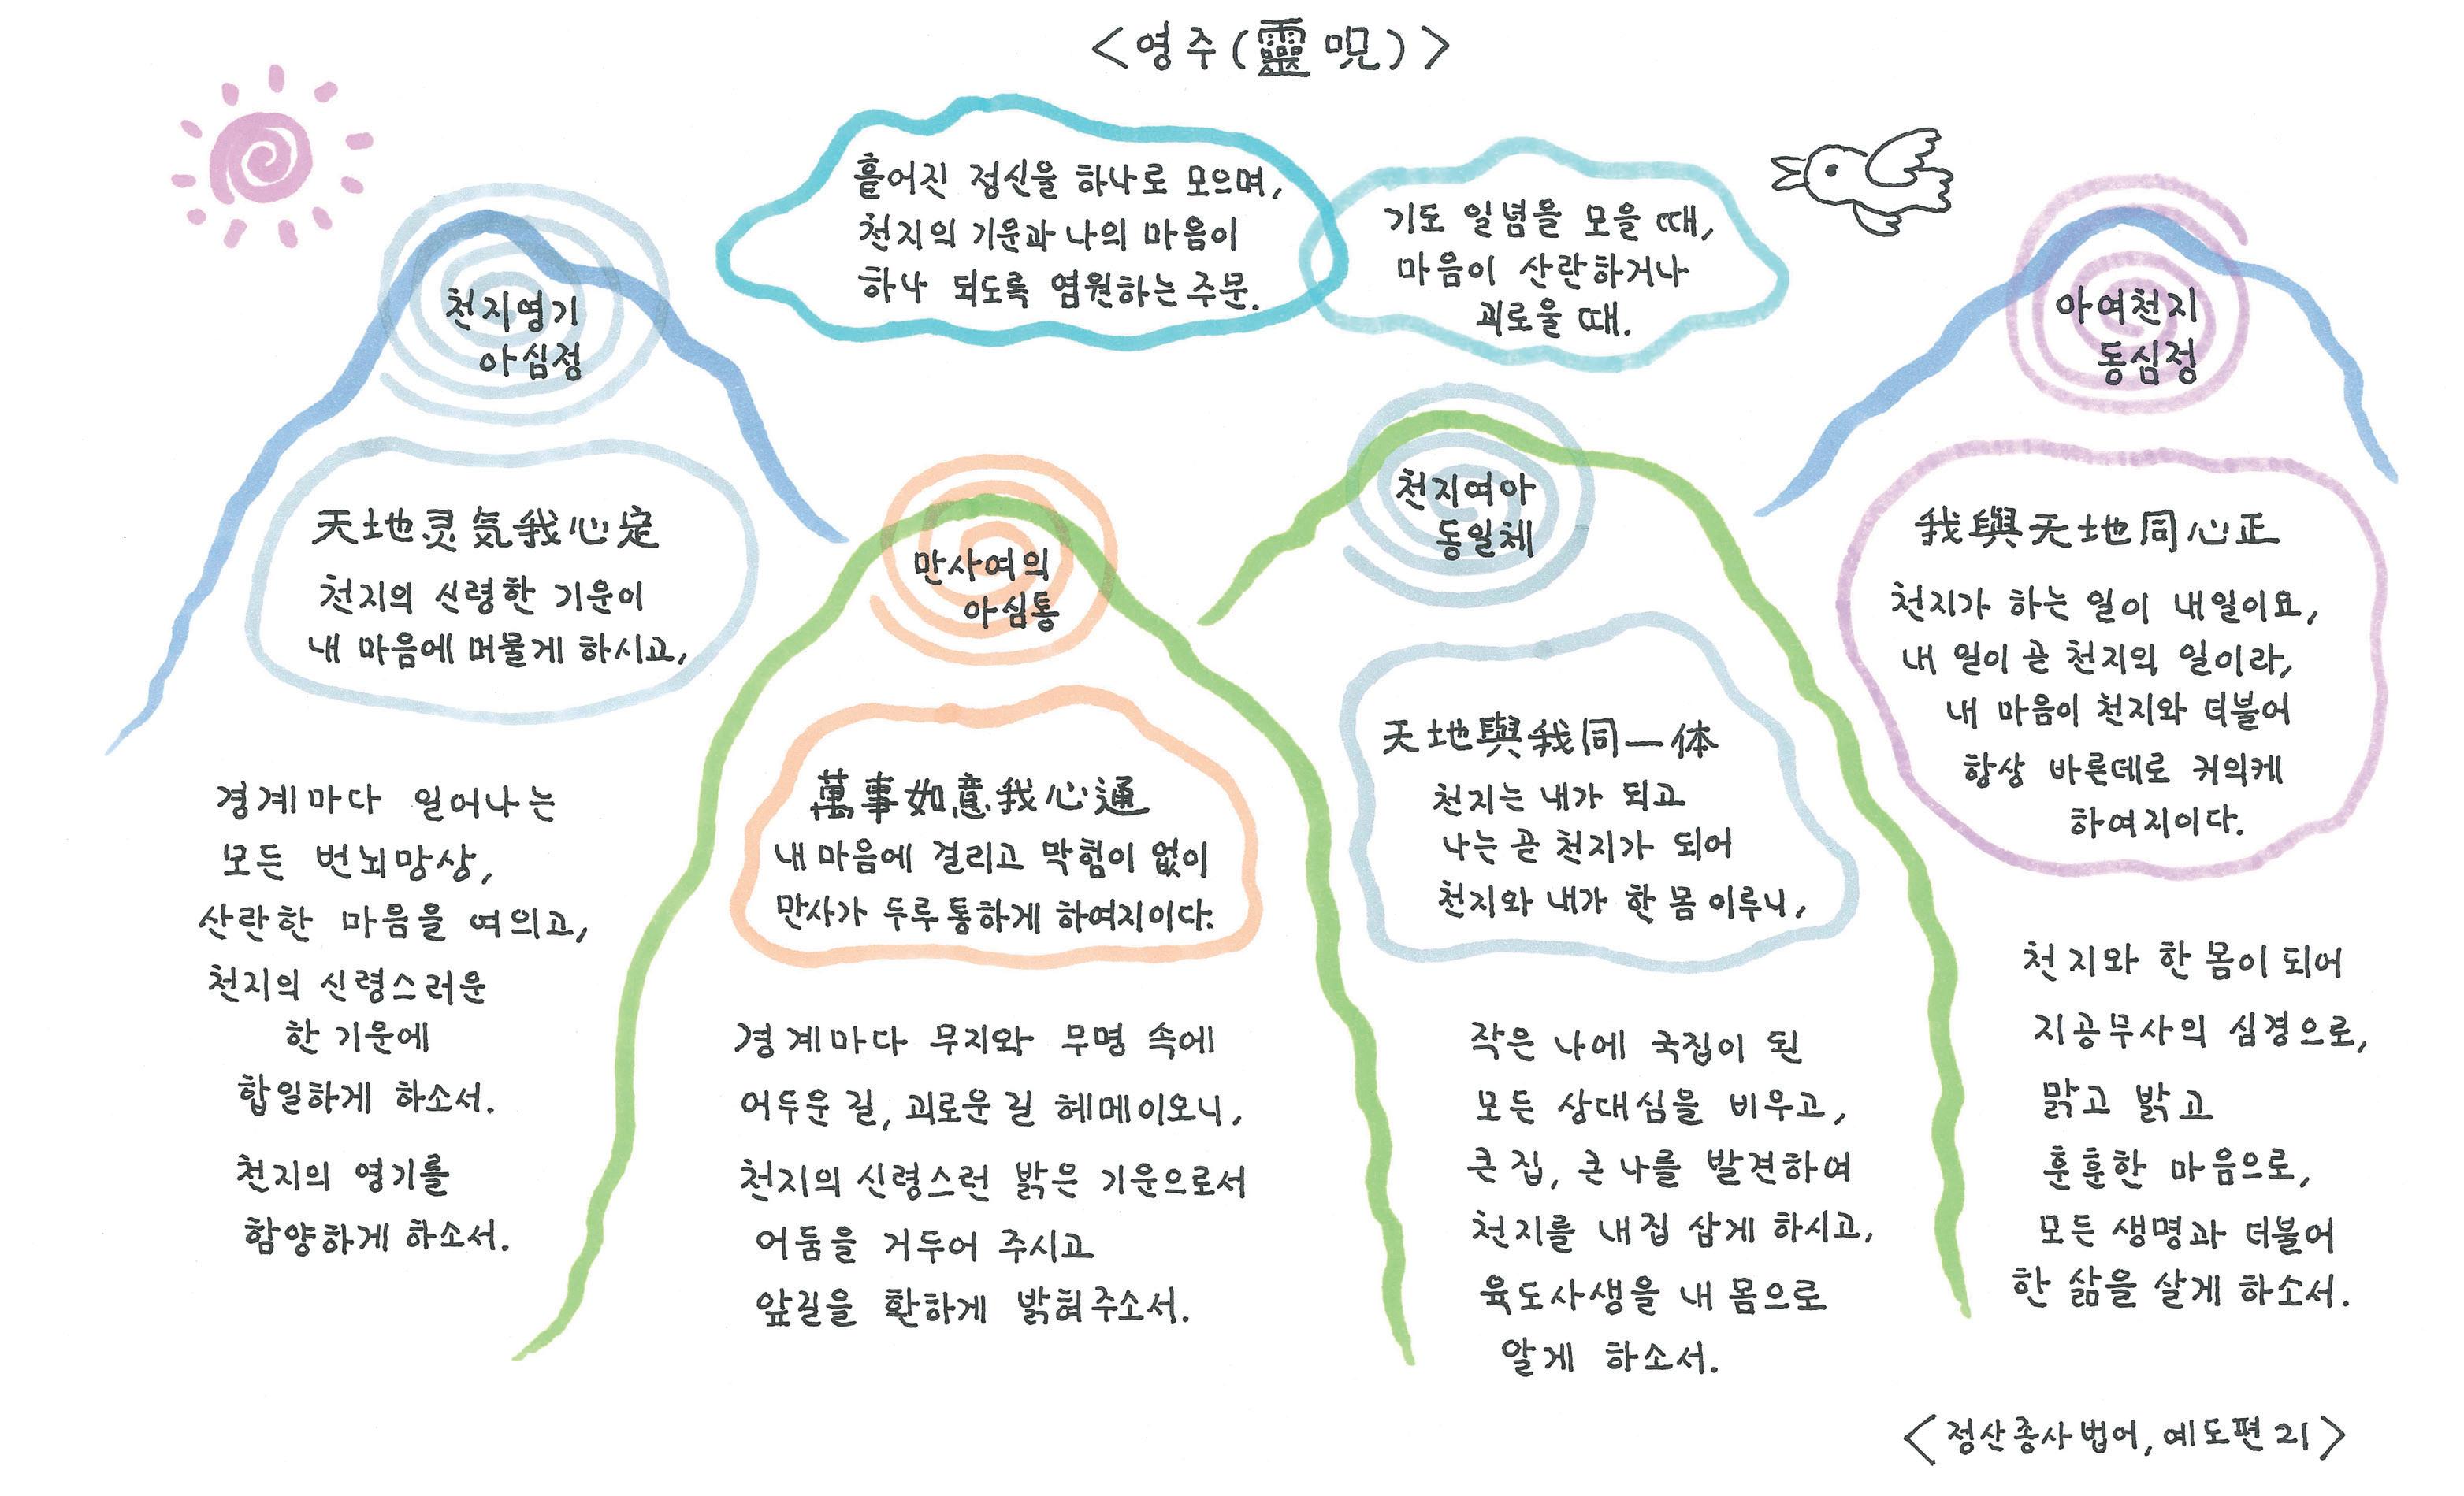 <영주(靈呪)>
흩어진 정신을 하나로 모으며,
천지의 기운과 나의 마음이
하나 되도록 염원하는 주문.
기도 일념을 모을 때,
마음이 산란하거나
괴로울 때.
천지영기
아심정
天地灵気我心定
천지의 신령한 기운이
내 마음에 머물게 하시고,
경계마다 일어나는
모든 번뇌망상,
산란한 마음을 여의고,
천지의 신령스러운
한 기운에
합일하게 하소서.
천지의 영기를
함양하게 하소서.
만사여의
아심통
萬事如意我心通
내 마음에 걸리고 막힘이 없이
만사가 두루 통하게 하여지이다.
경계마다 무지와 무명 속에
어두운 길, 괴로운 길 헤메이오니,
천지의 신령스런 밝은 기운으로서
어둠을 거두어 주시고
앞길을 환하게 밝혀주소서.
천지여아
동일체
天地與我同一体
천지는 내가 되고
나는 곧 천지가 되어
천지와 내가 한 몸 이루니,
작은 나에 국집이 된
모든 상대심을 비우고,
큰 집, 큰 나를 발견하여
천지를 내집 삼게 하시고,
육도사생을 내 몸으로
알게 하소서.
아여천지
동심정
我與天地同心正
천지가 하는 일이 내일이요,
내 일이 곧 천지의 일이라,
내 마음이 천지와 더불어
항상 바른데로 귀의케
하여지이다.
천지와 한 몸이 되어
지공무사의 심경으로,
맑고 밝고
훈훈한 마음으로,
모든 생명과 더불어
한 삶을 살게 하소서.
<정산종사법어, 예도편 21>